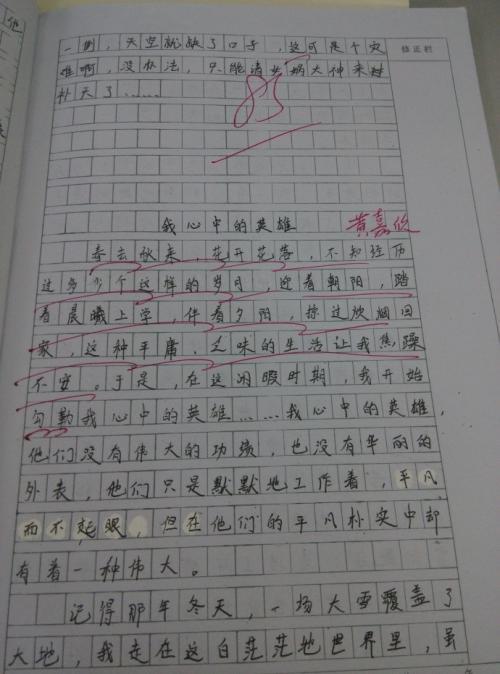 他
一侧，天空就缺了口子，这可是个灾
修正栏
难啊，没办法，只能请女娲大神来对
补天了……
85
我心中的英雄 黄嘉
春去秋来，花开花落，不知经历
过多少个这样的岁月，迎着朝阳，踏
着晨曦上学，伴着夕阳，掠过炊烟回
家，这种平庸，乏味的生活让我焦躁
不安。于是，在这闲暇时期，我开始
勾勒我心中的英雄……我心中的英雄，
他们没有伟大的功绩，也没有华丽的
外表，他们只是默默地工作着，平凡
而不起眼，但在他们的平凡朴实中却
有着一种伟大。
记得那年冬天，一场大雪覆盖了
大地，我走在这白茫茫地世界里，虽